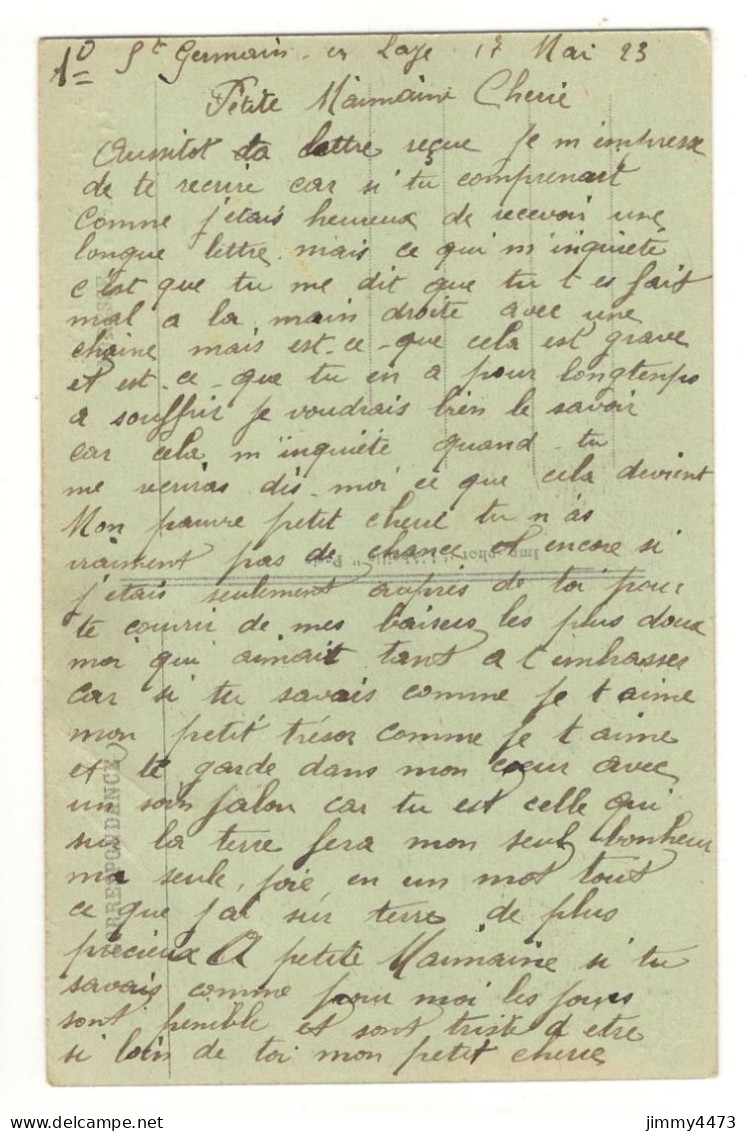 1º St Germain en Laye 17 Mai 23
Petite Mainaine Cherie
Aussitot ta lettre reçue Je m'impresse
de te recrire car si tu comprenait
comme j'etais heureux de recevoir une
longue lettre mais ce qui m'inquiete
c'est que tu me dit que tu t es fait
mal a la main droite avec une
chaine mais est-ce-que cela est grave
et est-ce-que tu en a pour longtemps
a souffrir je voudrais bien le savoir
car cela m'inquiete quand tu
me recriras dis-moi ce que cela devient
Mon pauvre petit cheri tu n'as
vraiment pas de chance et encore si
j'etais seulement auprès de toi pour
te couvrir de mes baisers les plus doux
moi qui aimait tant a t'embrasser
car si tu savais comme je t aime
mon petit trésor comme je t aime
et te garde dans mon cœur avec
un soin jalou car tu est celle qui
sur la terre fera mon seul bonheur
ma seule joie, en un mot tout
ce que j'ai sur terre de plus
précieux A petite Mainaine si tu
savais comme pour moi les jours
sont penible et sont triste d etre
si loin de toi mon petit cherie
CORRESPONDANCE
jimmy4473